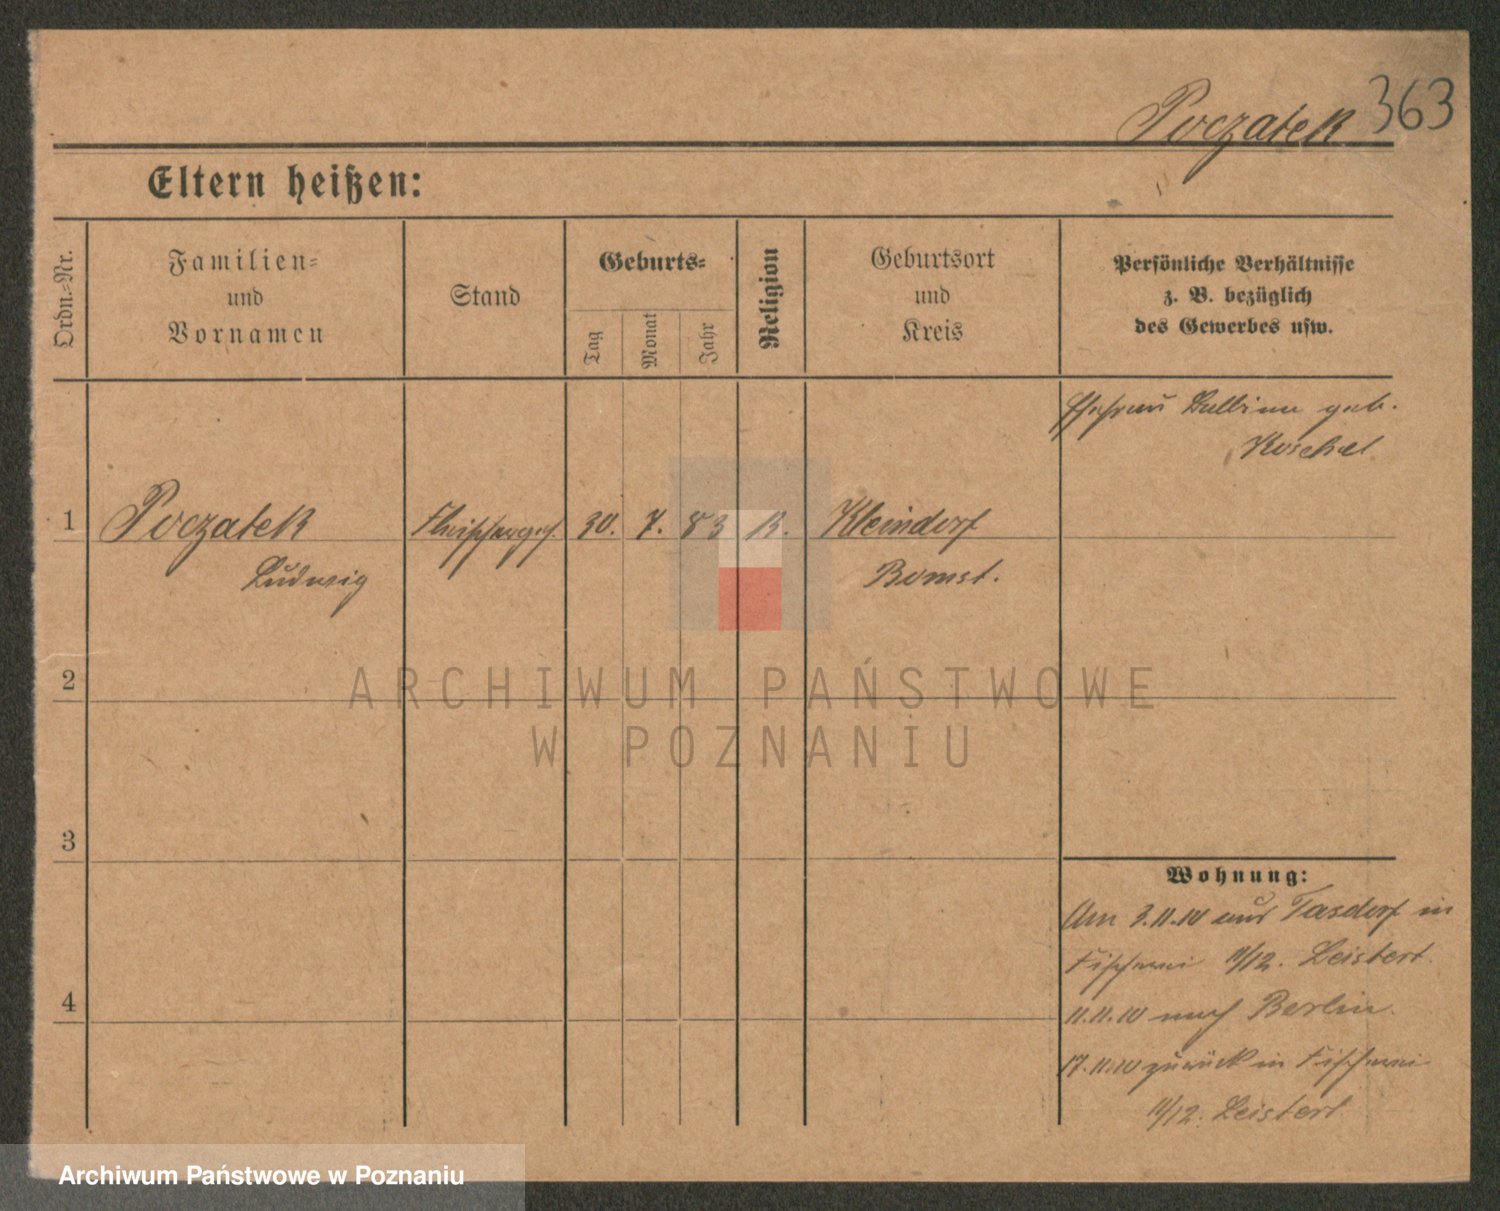 Poczatek 363
Eltern heißen:
Ordn.-Nr.
Familien-
und
Vornamen
Stand
Geburts-
Tag
Monat
Jahr
Religion
Geburtsort
und
Kreis
Persönliche Verhältnisse
z. B. bezüglich
des Gewerbes usw.
Ehefrau geb.
Koschel
1 Poczatek Fleischerges. 30. 7. 83 K. Kleindorf
Ludwig Bomst.
2
3
4
Wohnung:
Am 3.11.10 aus Tasdorf in
Fischerei 11/12. Leistert.
11.11.10 nach Berlin.
17.11.10 zurück in Fischerei
11/12. Leistert
ARCHIWUM PAŃSTWOWE
W POZNANIU
Archiwum Państwowe w Poznaniu